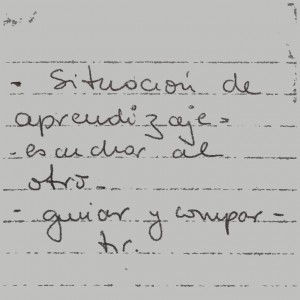 - Situación de
aprendizaje -
- escuchar al
otro -
- guiar y compar -
tir.